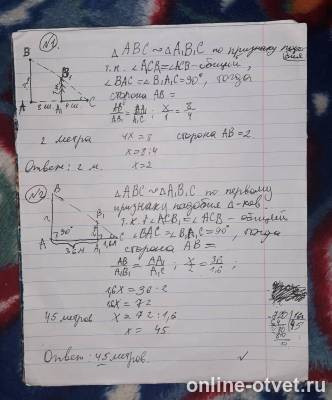 №1.
B
△ABC ∼ △A₁B₁C по признаку подобия
т.к. ∠ACB₁=∠ACB-общий,
∠BAC=∠B₁A₁C=90°, тогда
A 8 м. A₁ 4 м. C
сторона AB =
AB/AB₁ = AA₁/A₁C; x/1 = 8/4
2 метра 4x=8 сторона AB=2
x=8:4
Ответ: 2 м. x=2
№2
B
△ABC ∼ △A₁B₁C по первому
признаку подобия Δ-ков.
B₁
т.к. ∠ACB₁ = ∠ACB - общий
90°
∠BAC = ∠B₁A₁C=90°, тогда
A A₁ 1,6м C
36м
сторона AB =
AB/A₁B₁ = AA₁/A₁C; x/2 = 36/1,6;
1,6x=36·2
1,6x=72
45 метров x = 72:1,6
x = 45
Ответ: 45 метров.
online-otvet.ru